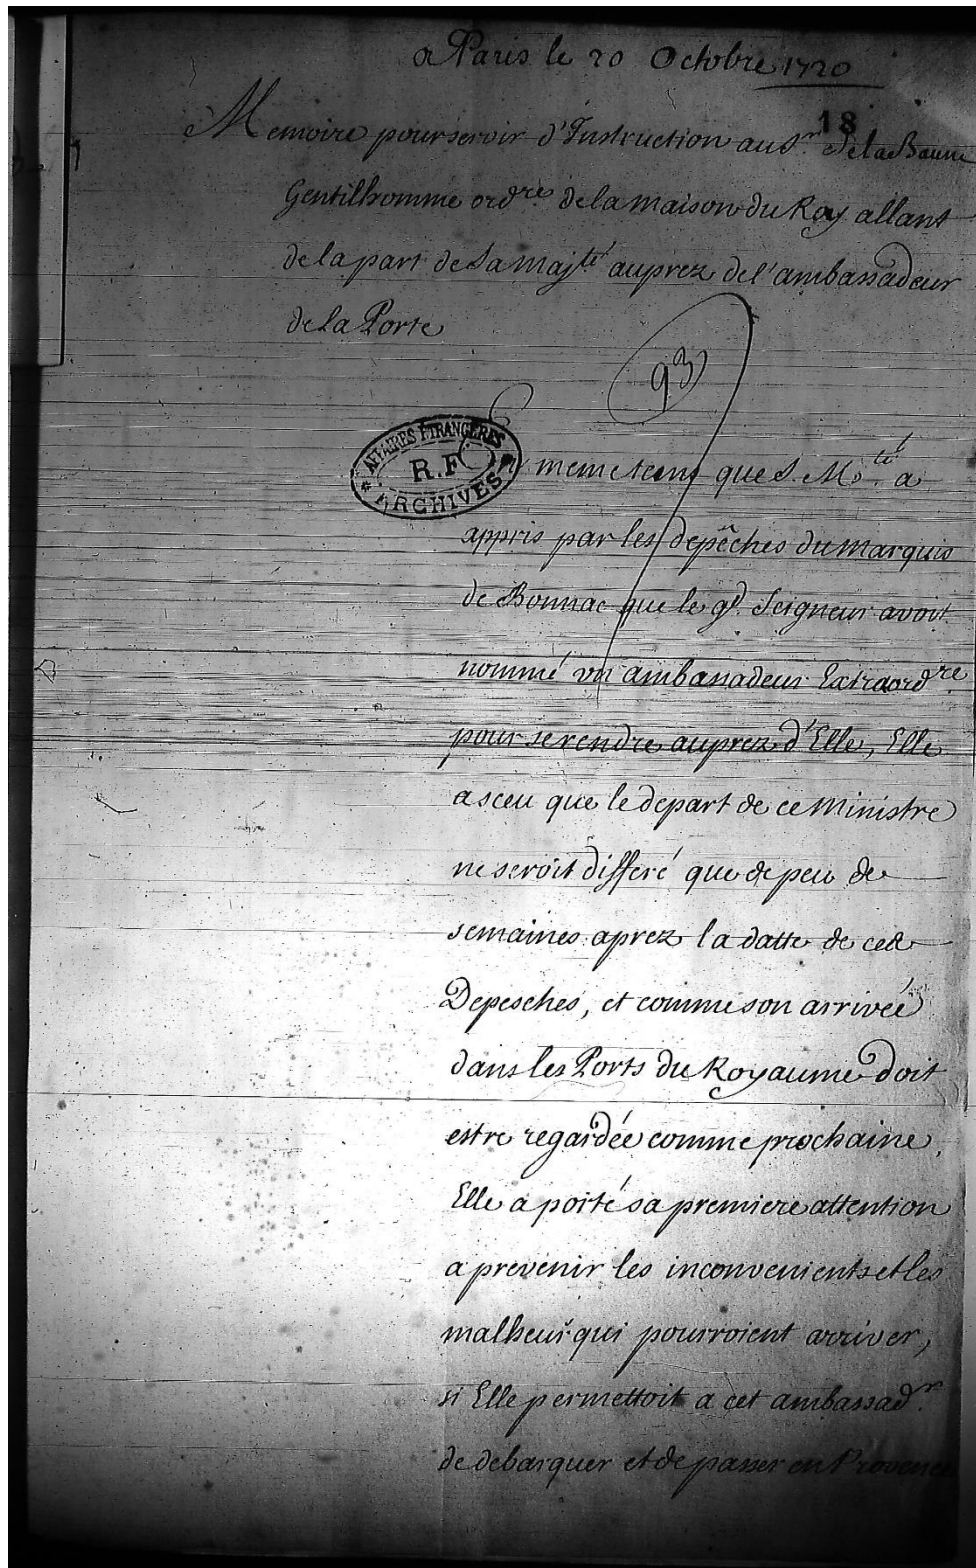 a Paris le 20 Octobre 1720
18
Memoire pour servir d'Instruction au Sr. de la Baune
Gentilhomme ordres de la maison du Roy allant
de la part de Sa Majté auprez de l'ambassadeur
de la Porte
93
AFFAIRES ÉTRANGÈRES
R.F.
ARCHIVES
En meme tems que S. Mté. a
appris par les depêches du Marquis
de Bonnac que le gd. Seigneur avoit
nommé un ambassadeur Extraordre
pour se rendre auprez d'Elle, Elle
a sceu que le depart de ce Ministre
ne seroit differé que de peu de
semaines aprez la datte de ces
Depesches, et comme son arrivée
dans les Ports du Royaume doit
estre regardée comme prochaine,
Elle a porté sa premiere attention
a prevenir les inconvenients et les
malheurs qui pourroient arriver,
si Elle permettoit a cet ambassadr.
de debarquer et de passer en Provence